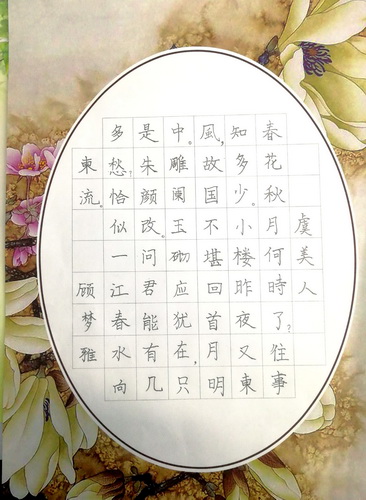 虞美人
春花秋月何時了?住事
知多少。小楼昨夜又東
風,故国不堪回首月明
中。雕阑玉砌应犹在,只
是朱颜改。问君能有几
多愁?恰似一江春水向
東流。 顾梦雅